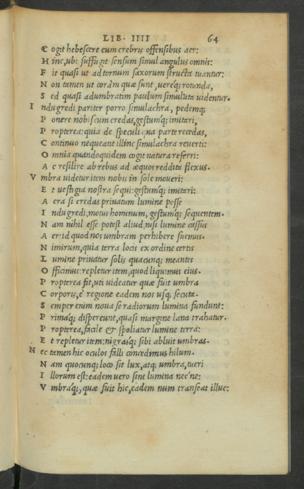 LIB. IIII 64
Cogit hebescere eum crebris offensibus aer:
Hinc, ubi suffugit sensum simul angulus omnis:
Fit quasi ut ad tornum saxorum structa tuantur:
Non tamen ut coram quae sunt, uereq; rotunda,
Sed quasi adumbratim paulum simulata uidentur.
Indugredi pariter porro simulachra, pedemq;
Ponere nobiscum credas, gestumq; imitari,
Propterea: quia de speculi qua parte recedas,
Continuo nequeant illinc simulachra reuerti:
Omnia quandoquidem cogit natura referri:
Ac resilire ab rebus ad aequos reddita flexus.
Vmbra uidetur item nobis in sole moueri:
Et uestigia nostra sequi: gestumq; imitari:
Aera si credas priuatum lumine posse
Indugredi, motus hominum, gestumq; sequentem.
Nam nihil esse potest aliud nisi lumine cassus
Aer id quod nos umbram perhibere suemus.
Nimirum, quia terra locis ex ordine certis
Lumine priuatur solis quacunq; meantes
Officimus: repletur item, quod liquimus eius.
Propterea fit, uti uideatur quae fuit umbra
Corporis, è regione eadem nos usq; secuta.
Semper enim noua se radiorum lumina fundunt:
Primaq; dispereunt, quasi in lana trahatur.
Propterea, facile & spoliatur lumine terra:
Et repletur item: nigrasq; sibi abluit umbras.
Nec tamen hic oculos falli concedimus hilum.
Nam quocunq; loco sit lux, atq; umbra, tueri
Illorum est: eadem uero sint lumina nec'ne:
Vmbraq;, quae fuit hic, eadem num transeat illuc: